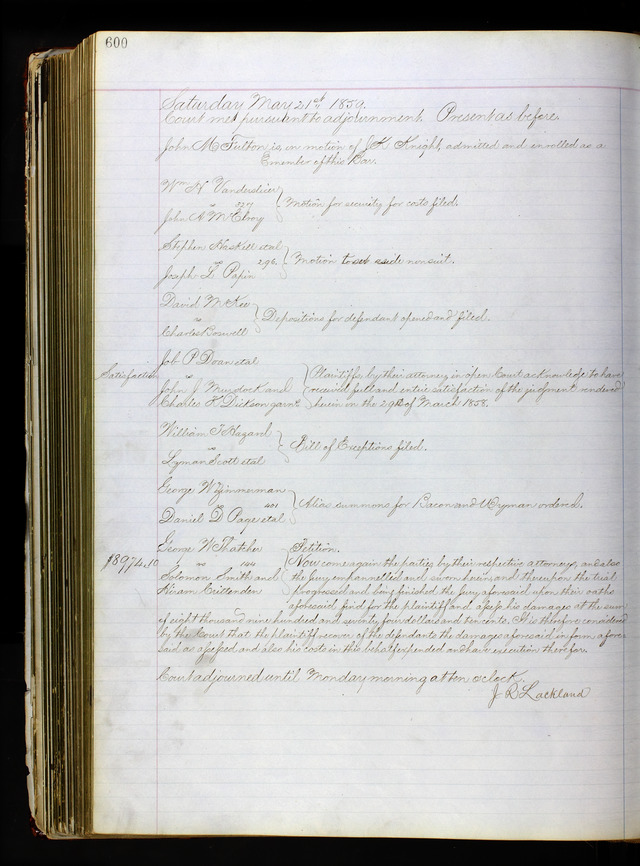 600
Saturday May 21st 1859.
Court met pursuant to adjournment. Present as before.
John M Fulton is, on motion of J K Knight, admitted and enrolled as a
member of this Bar.
Wm N Vanderslice
vs 527 Motion for security for costs filed.
John A McElroy
Stephen Haskell et al
vs 296 Motion to set aside nonsuit.
Joseph L Papin
David McKee
vs Depositions for defendant opened and filed.
Charles Boswell
Job P Doan et al
Satisfaction vs Plaintiffs by their attorney in open Court acknowledge to have
John J Murdock and received full and entire satisfaction of the judgment rendered
Charles K Dickson garns herein on the 29th of March 1858.
William T Hazard
vs Bill of Exceptions filed.
Lyman Scott et al
George W Zimmerman
vs 401 Alias summons for Bacon and Wyman ordered.
Daniel D Page et al
George W Thatcher Petition.
$8974.10 vs 144 Now come again the parties by their respective attorneys, and also
Solomon Smith and the Jury empannelled and sworn herein, and thereupon the trial
Hiram Crittenden progressed and being finished the Jury aforesaid upon their oaths
aforesaid, find for the plaintiff and assess his damages at the sum
of eight thousand nine hundred and seventy four dollars and ten cents. It is therefore considered
by the Court that the plaintiff recover of the defendants the damages aforesaid in form afore-
said as assessed and also his costs in this behalf expended and have execution therefor.
Court adjourned until Monday morning at ten o'clock.
J R Lackland